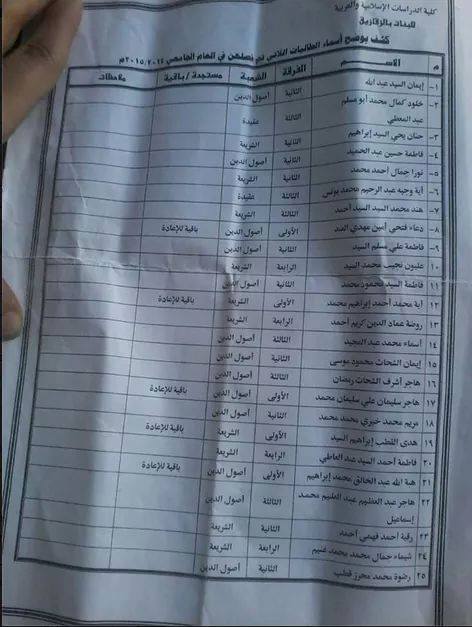 كلية الدراسات الإسلامية والعربية
للبنات بالزقازيق
كشف يوضح أسماء الطالبات اللاتي تم فصلهن في العام الجامعي ٢٠١٥/٢٠١٤م
م الاســـم الفرقة الشعبة مستجدة / باقية ملاحظات
١- إيمان السيد عبد الله الثانية أصول الدين
٢- خلود كمال محمد أبو مسلم الثالثة عقيدة
عبد المعطي
٣- حنان يحي السيد إبراهيم الثانية الشريعة
٤- فاطمة حسين عبد الحميد الثانية أصول الدين
٥- نورا جمال أحمد محمد الثانية الشريعة
٦- آية وجيه عبد الرحيم محمد يونس الثالثة عقيدة
٧- هند محمد السيد السيد أحمد الثالثة الشريعة
٨- دعاء فتحي أمين مهدي الأولى أصول الدين باقية للإعادة
٩- فاطمة علي مسلم السيد الثانية أصول الدين
١٠ نجيب محمد السيد الرابعة الشريعة
١١ فاطمة السيد محمود محمد الثانية أصول الدين
١٢ آية محمد أحمد إبراهيم محمد الأولى الشريعة باقية للإعادة
١٣ روضة عماد الدين كريم أحمد الرابعة الشريعة
١٤ أسماء محمد عبد المجيد الثالثة أصول الدين
١٥ إيمان الشحات محمود موسى الثانية أصول الدين
١٦ هاجر أشرف الشحات رمضان الثالثة أصول الدين
١٧ هاجر سليمان علي سليمان محمد الأولى أصول الدين باقية للإعادة
١٨ مريم محمد خيري محمد محمد الثانية أصول الدين
١٩ هدى القطب إبراهيم السيد الأولى الشريعة باقية للإعادة
٢٠ فاطمة أحمد السيد عبد العاطي الرابعة الشريعة
٢١ هبة الله عبد الخالق محمد إبراهيم الأولى أصول الدين باقية للإعادة
٢٢ هاجر عبد العظيم عبد العليم محمد الثالثة أصول الدين
إسماعيل
٢٣ رقية أحمد فهمي أحمد الثانية الشريعة
٢٤ شيماء جمال محمد محمد غنيم الرابعة الشريعة
٢٥ رضوة محمد محرز قطب الثانية أصول الدين